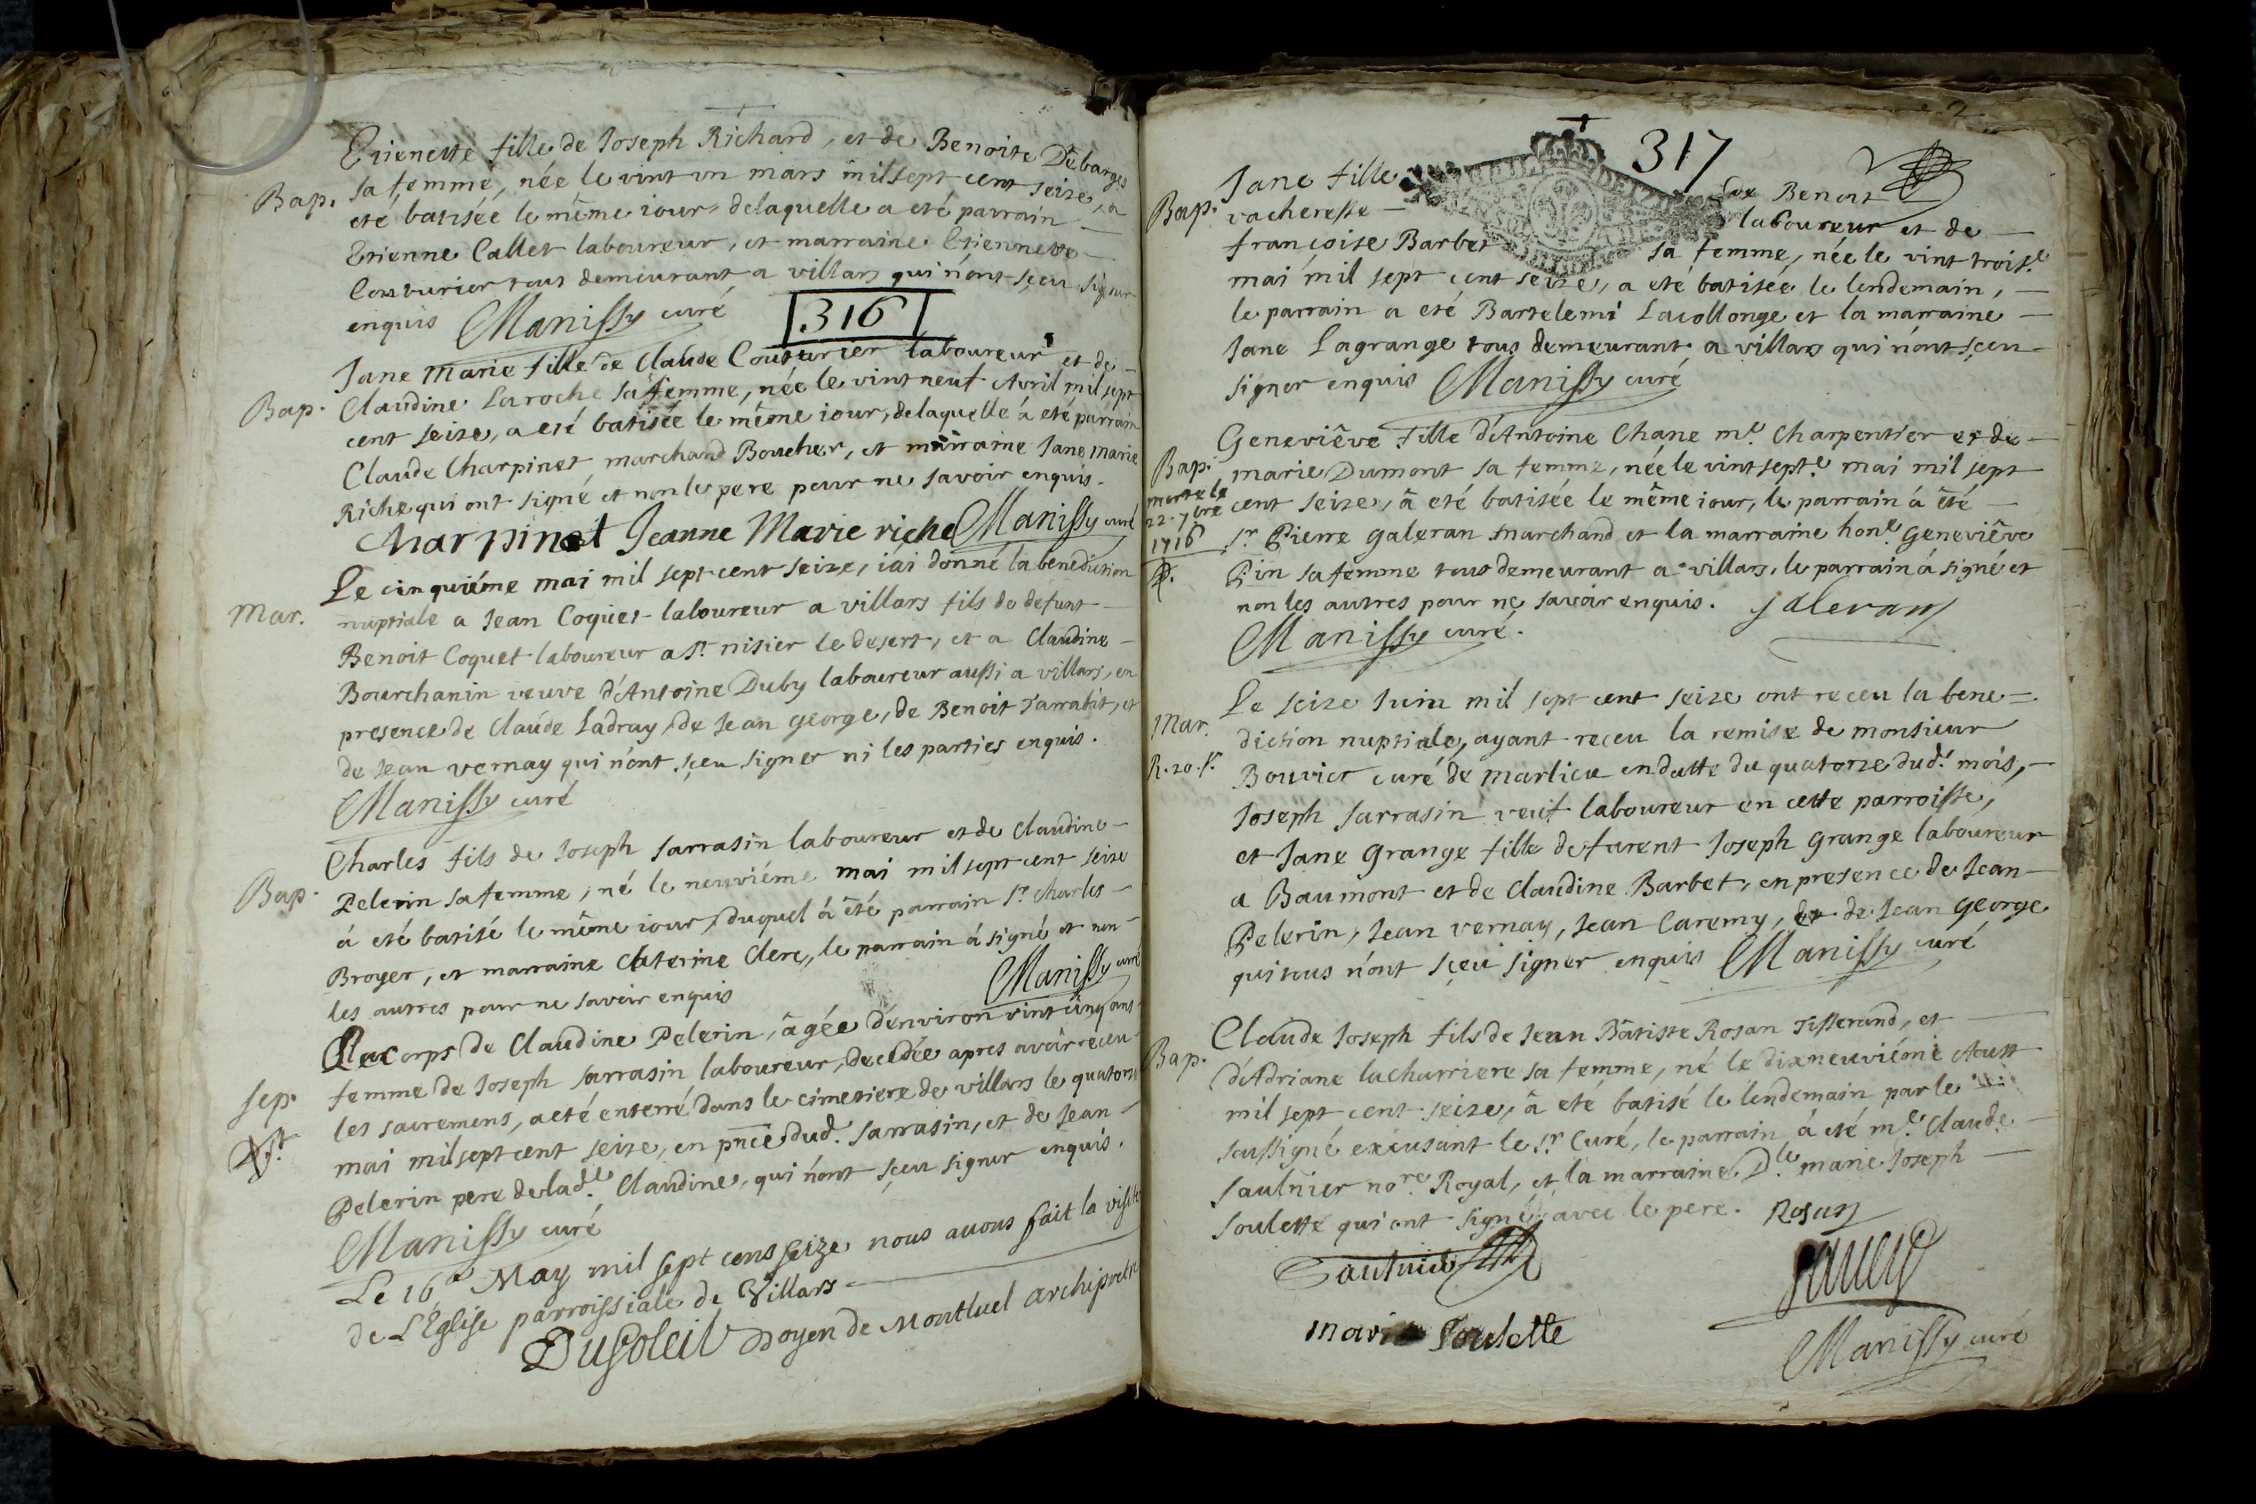 Etienette fille de Joseph Richard, et de Benoite Debarges
Bap. sa femme, née le vint un mars mil sept cent seize, a
eté batisée le même iour, delaquelle a eté parrain
Etienne Callet laboureur, et marraine Etiennette
Couturier tous demeurant a villars qui n'ont sçeu signer
enquis Manissy curé
316
Jane Marie fille de Claude Couturier laboureur et de
Bap. Claudine Laroche sa femme, née le vint neuf Avril mil sept
cent seize, a eté batisée le même iour, delaquelle á eté parrain
Claude Charpinet marchand Boucher, et marraine Jane marie
Riche qui ont signé et non le pere pour ne savoir enquis.
Charpinet Jeanne Marie riche Manissy curé
Le cinquiéme mai mil sept cent seize, i'ai donné la benediction
Mar. nuptiale a Jean Coquet laboureur a villars fils de defunt
Benoit Coquet laboureur a St. nisier le desert, et a Claudine
Bourchanin veuve d'Antoine Duby laboureur aussi a villars, en
presence de Claude Ladray, de Jean george, de Benoit Tarrabit, et
de Jean vernay qui n'ont sçeu signer ni les parties enquis.
Manissy curé
Charles fils de Joseph Sarrasin laboureur et de Claudine
Bap. Pelerin sa femme, né le neuviéme mai mil sept cent seize
á eté batisé le même iour, duquel á êté parrain Sr. Charles
Broyer, et marraine Caterine Clerc, le parrain á signé et non
les autres pour ne savoir enquis Manissy curé
Le corps de Claudine Pelerin, âgée d'environ vint cinq ans
Sep. femme de Joseph Sarrasin laboureur, decedée apres avoir receu
les sacremens, a eté enterré dans le cimetiere de villars le quatorse
mai mil sept cent seize, en pnce dud. Sarrasin, et de Jean
Pelerin pere de lade. Claudine, qui n'ont sçeu signer enquis.
Manissy curé
Le 16e May mil sept cens seize nous avons fait la visite
de L'Eglise parroissiale de Villars
Dusoleil Doyen de Montluel archiprêtre
317
Jane fille de Benoit
Bap. vacheresse laboureur et de
françoise Barbet sa femme, née le vint troise.
mai mil sept cent seize, a eté batisée le lendemain,
le parrain a eté Bartelemi Lacollonge et la marraine
Jane Lagrange tous demeurant a villars qui n'ont sçeu
signer enquis Manissy curé
Geneviêve fille d'Antoine Chane me. Charpentier et de
Bap. marie Dumont sa femme, née le vint septe. mai mil sept
morte le
22. 7bre
1716
cent seize, â eté batisée le même iour, le parrain á êté
sr. Pierre galeran marchand et la marraine hone. Geneviêve
Pin sa femme tous demeurant a villars, le parrain á signé et
non les autres pour ne savoir enquis. galeran
Manissy curé.
Le seize Juin mil sept cent seize ont receu la bene
Mar. diction nuptiale, ayant receu la remise de monsieur
R. 20. s. Bouvier curé de marlieu en datte du quatorze dud. mois,
Joseph Sarrasin veuf laboureur en cette parroisse,
et Jane Grange fille de furent Joseph Grange laboureur
a Baumont et de Claudine Barbet, en presence de Jean
Pelerin, Jean vernay, Jean Caremy, et de Jean George
qui tous n'ont sçeu signer enquis Manissy curé
Claude Joseph fils de Jean Bâtiste Rosan Tisserand, et
Bap. d'Adriane lacharriere sa femme, né le dixneuviéme Aoust
mil sept cent seize, â eté batisé le lendemain par le
soussigné excusant le sr. Curé, le parrain á eté me. Claude
Saulnier nore. Royal, et la marraine Dle. marie Joseph
Soulette qui ont signé avec le pere. Rosan
Saulnier
marie Soulette
Manissy curé